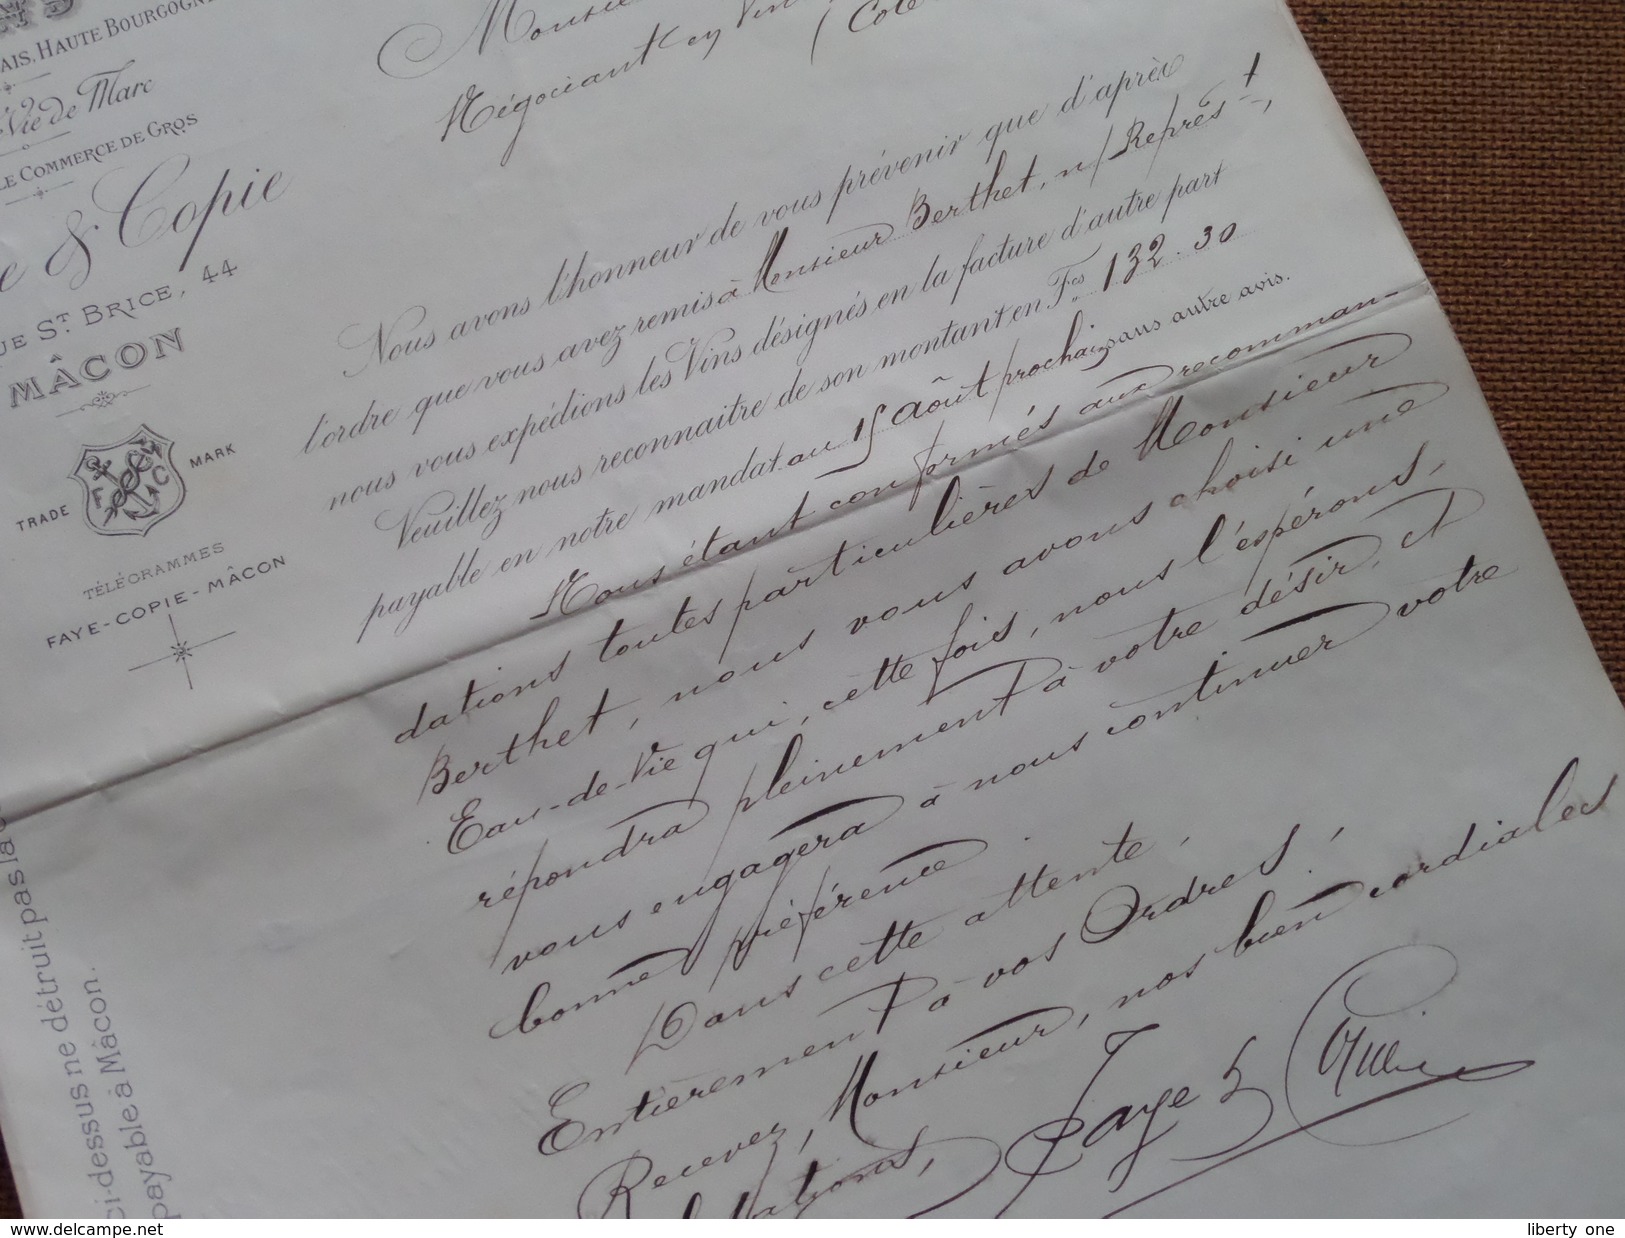 AIS, HAUTE BOURGOGNE
Vie de Marc
LE COMMERCE DE GROS
e & Copie
UE ST BRICE, 44
MÂCON
TRADE MARK
F C
TÉLÉGRAMMES
FAYE-COPIE-MÂCON
ci-dessus ne détruit pas la
payable à Mâcon.
Négociant en Vin
(Côte
Nous avons l'honneur de vous prévenir que d'après
l'ordre que vous avez remis à Monsieur Berthet, n/ Représt,
nous vous expédions les Vins désignés en la facture d'autre part
Veuillez nous reconnaitre de son montant en Fcs 132.30
payable en notre mandat au 15 Août prochain sans autre avis.
Nous étant conformés aux recomman-
dations toutes particulières de Monsieur
Berthet, nous vous avons choisi une
Eau-de-Vie qui, cette fois, nous l'espérons,
répondra pleinement à votre désir, et
vous engagera à nous continuer votre
bonne préférence.
Dans cette attente,
Entièrement à vos Ordres,
Recevez, Monsieur, nos bien cordiales
Salutations,
Faye & Copie
liberty one